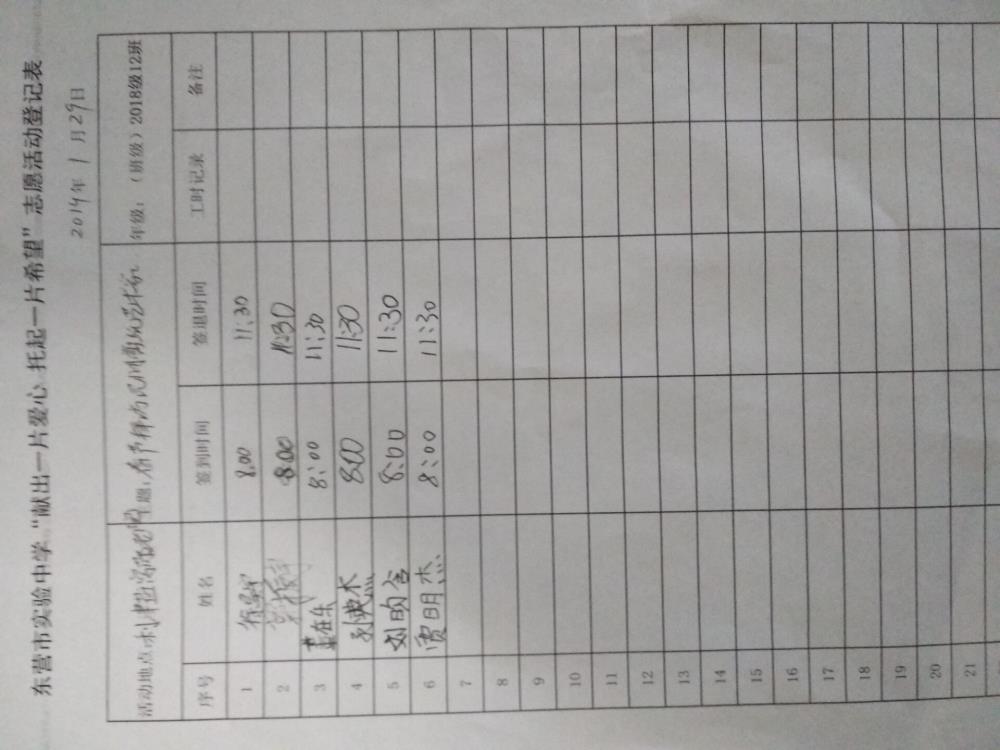 东营市实验中学“献出一片爱心 托起一片希望”志愿活动登记表
2019年 1 月 29日
活动地点 主题: 年级: (班级) 2018级12班
序号 姓名 签到时间 签退时间 工时记录 备注
1 8.00 11:30
2 8:00 11:30
3 在东 8:00 11:30
4 8:00 11:30
5 刘昀 8:00 11:30
6 贾明杰 8:00 11:30
7
8
9
10
11
12
13
14
15
16
17
18
19
20
21